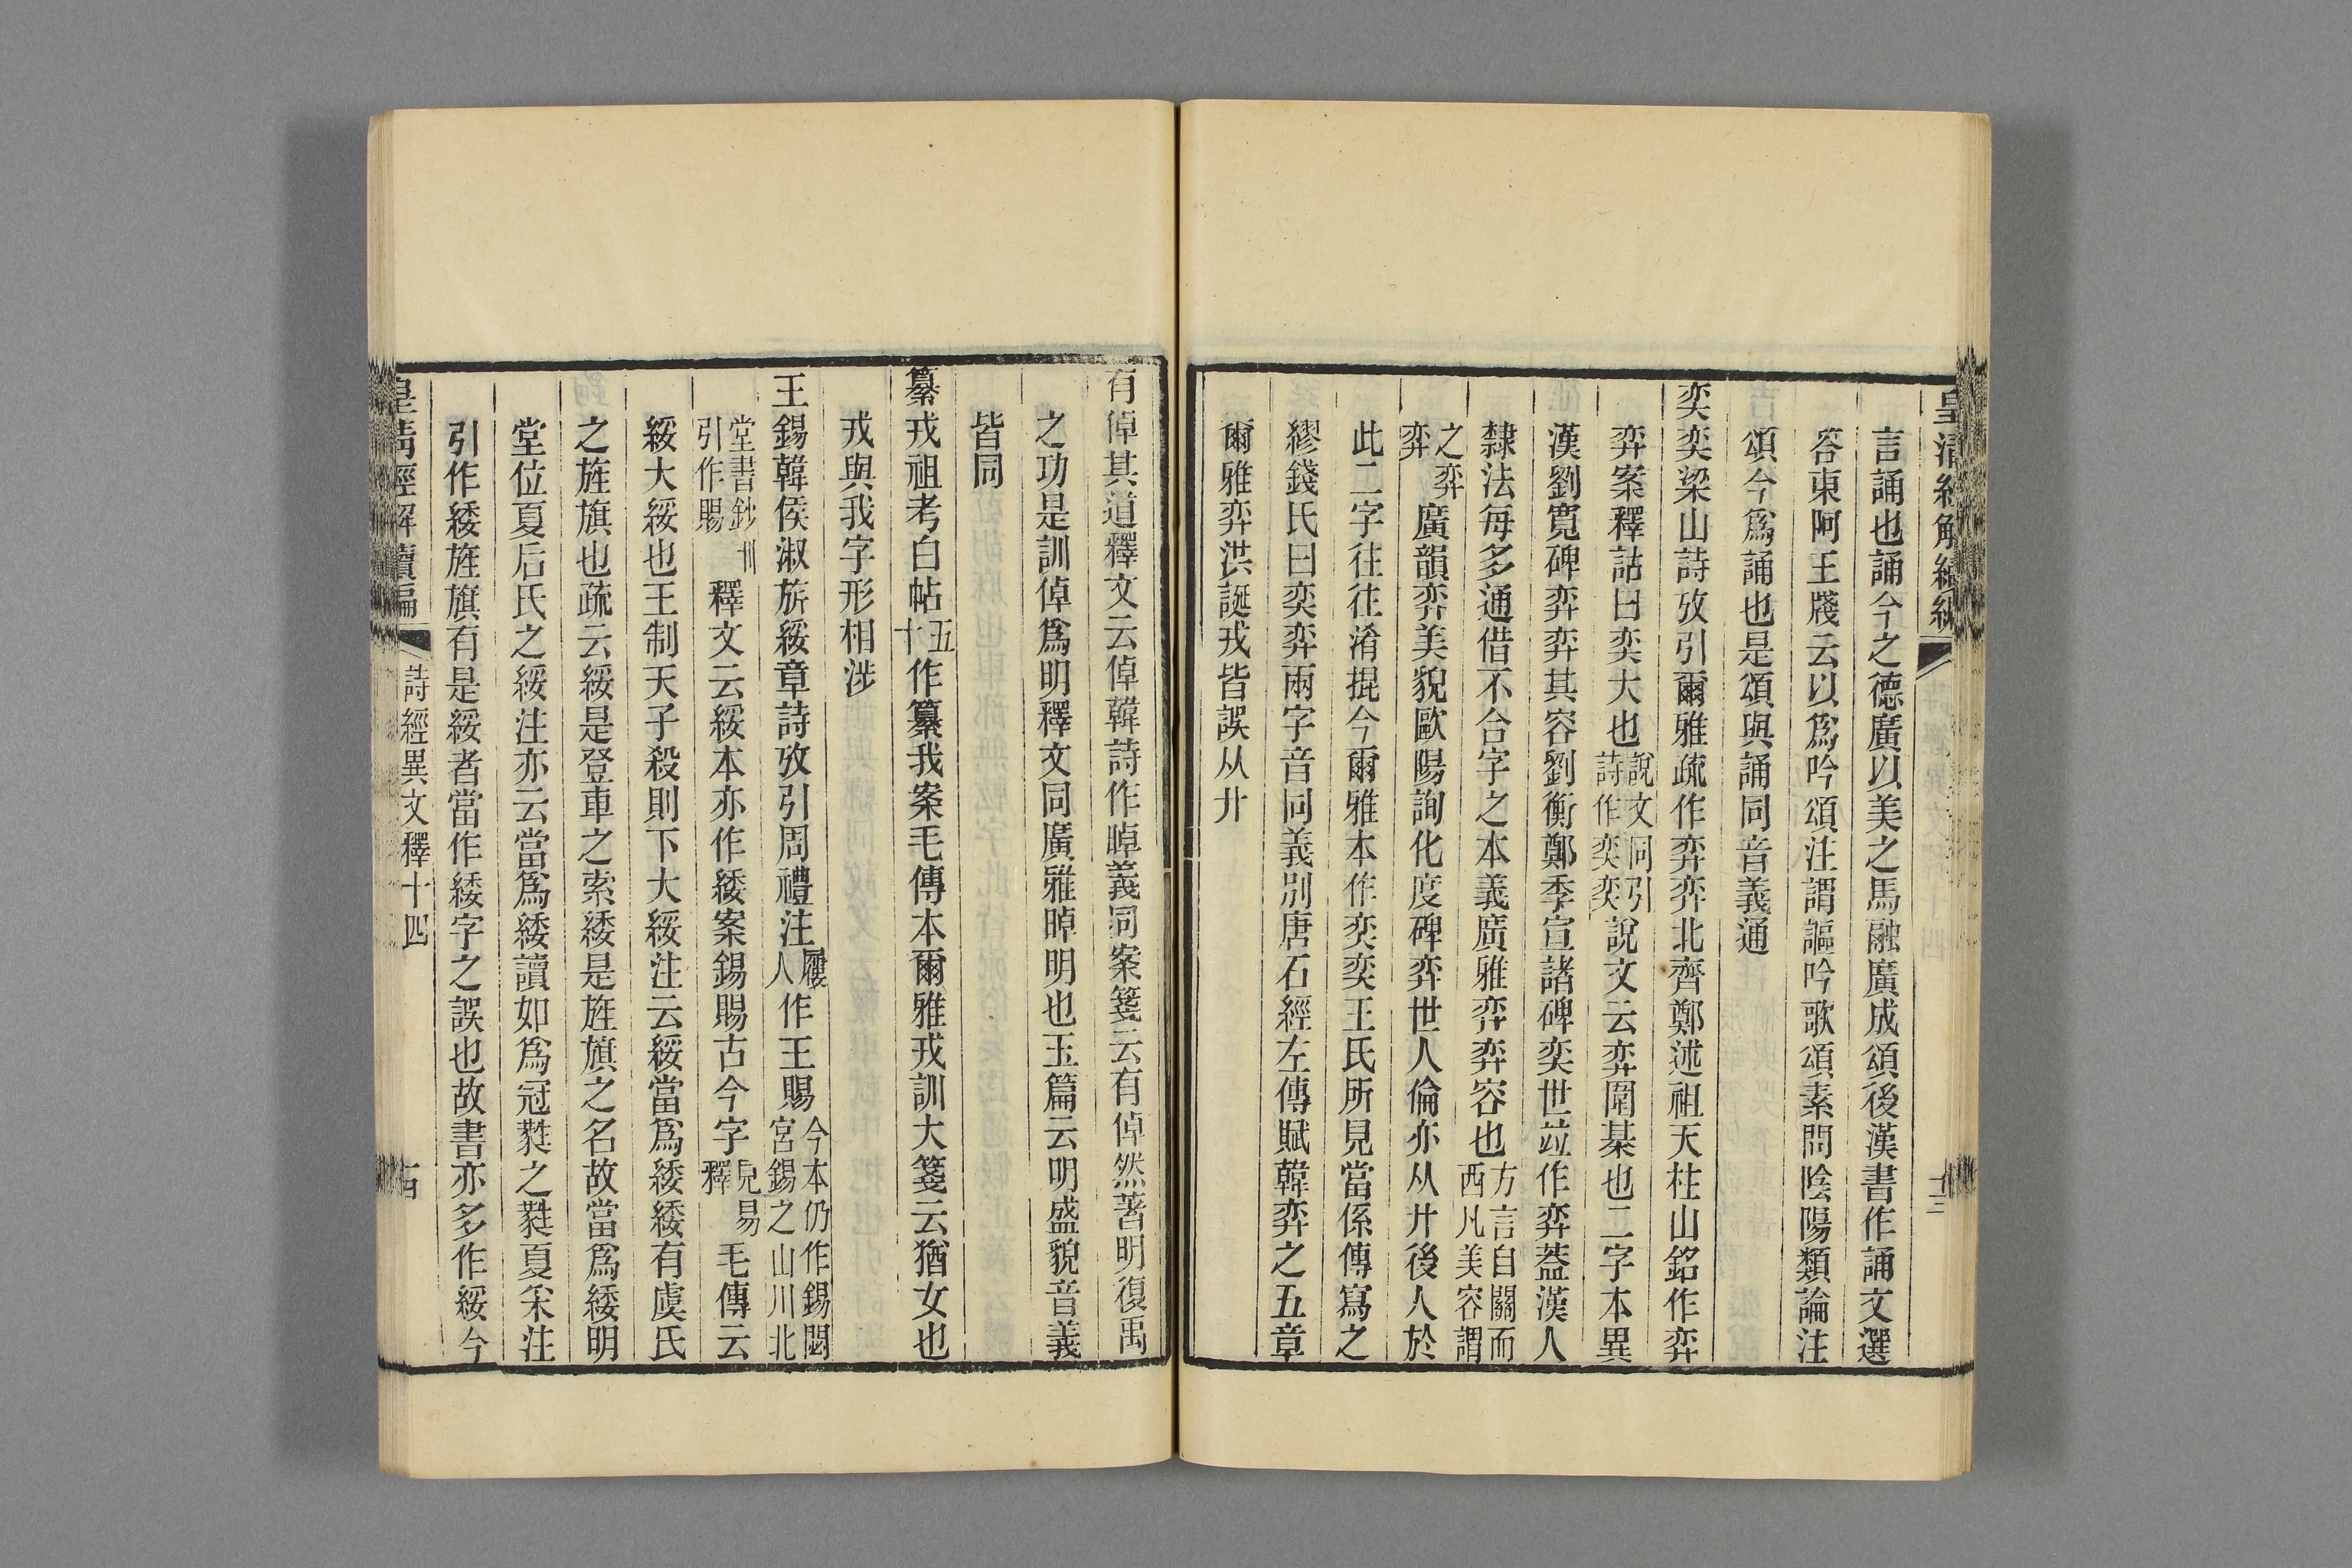 皇清經解續編
十三
言誦也誦今之德廣以美之馬融廣成頌後漢書作誦文選
答東阿王牋云以爲吟頌注謂謳吟歌頌素問陰陽類論注
頌今爲誦也是頌與誦同音義通
奕奕梁山詩攷引爾雅疏作弈弈北齊鄭述祖天柱山銘作弈
弈案釋詁曰奕大也說文同引詩作奕奕說文云弈圍棊也二字本異
漢劉寬碑弈弈其容劉衡鄭季宣諸碑奕世竝作弈葢漢人
隸法每多通借不合字之本義廣雅弈弈容也方言自關而西凡美容謂
之弈弈廣韻弈美貌歐陽詢化度碑弈世人倫亦从廾後人於
此二字往往淆掍今爾雅本作奕奕王氏所見當係傳寫之
繆錢氏曰奕弈兩字音同義別唐石經左傳賦韓弈之五章
爾雅弈洪誕戎皆誤从廾
有倬其道釋文云倬韓詩作晫義同案箋云有倬然著明復禹
之功是訓倬爲明釋文同廣雅晫明也玉篇云明盛貌音義
皆同
纂戎祖考白帖五十作纂我案毛傳本爾雅戎訓大箋云猶女也
戎與我字形相涉
王錫韓侯淑旂綏章詩攷引周禮注屨人作王賜今本仍作錫閟宮錫之山川北
堂書鈔卌引作賜釋文云綏本亦作緌案錫賜古今字見易釋毛傳云
綏大綏也王制天子殺則下大綏注云綏當爲緌緌有虞氏
之旌旗也疏云綏是登車之索緌是旌旗之名故當爲緌明
堂位夏后氏之綏注亦云當爲緌讀如爲冠蕤之蕤夏采注
引作緌旌旗有是綏者當作緌字之誤也故書亦多作綏今
皇清經解續編
詩經異文釋十四
十四